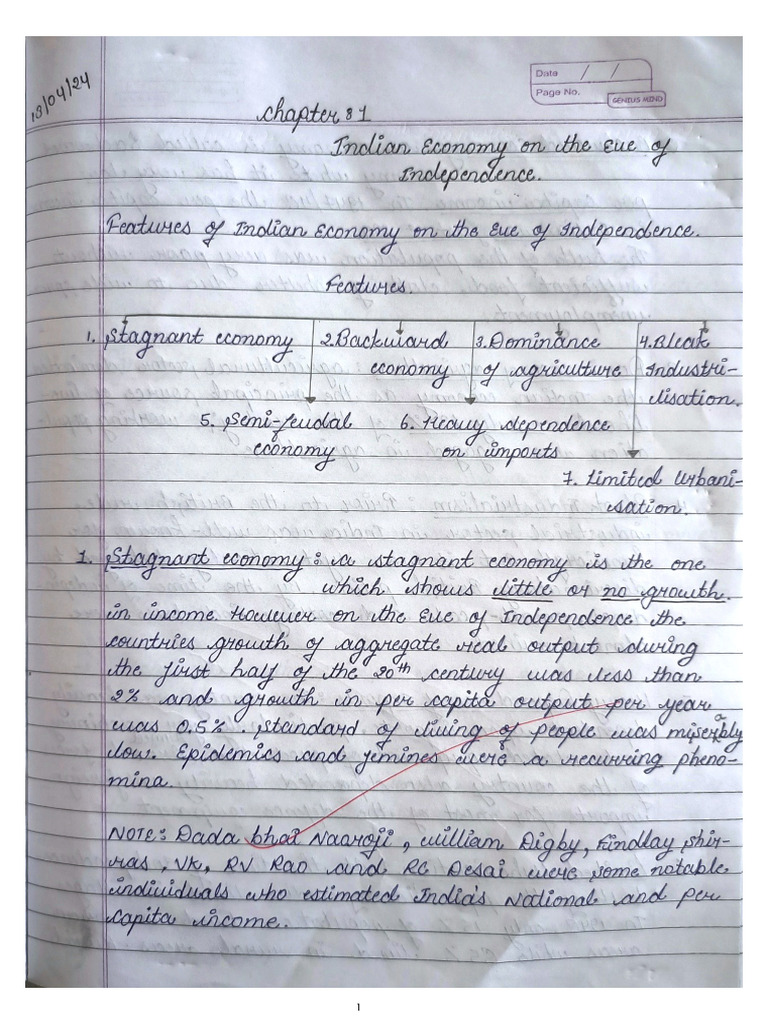 13/04/24
Date / /
Page No.
GENIUS MIND
Chapter 8 1
Indian Economy on the Eve of
Independence.
Features of Indian Economy on the Eve of Independence.
Features.
1. Stagnant economy 2. Backward economy 3. Dominance of agriculture 4. Bleak Industri-
alisation.
5. Semi-feudal economy 6. Heavy dependence on imports
7. Limited Urbani-
sation.
1. Stagnant economy : a stagnant economy is the one
which shows little or no growth.
in income. However on the Eve of Independence the
countries growth of aggregate real output during
the first half of the 20th century was less than
2% and growth in per capita output per year
was 0.5%. Standard of living of people was miserably
low. Epidemics and femines were a recurring pheno-
mina.
NOTE: Dada bhai Naoroji, William Digby, Findlay Shir-
ras, VK, RV Rao and RC Desai were some notable
individuals who estimated India's National and per
capita income.
1